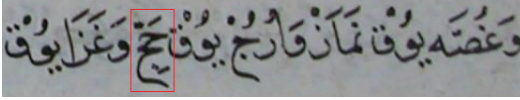 وَغُصَّه يُوْق نَمَازْ وَاُرُجْ يُوْق حَجّ وَغَزَا يُوْق